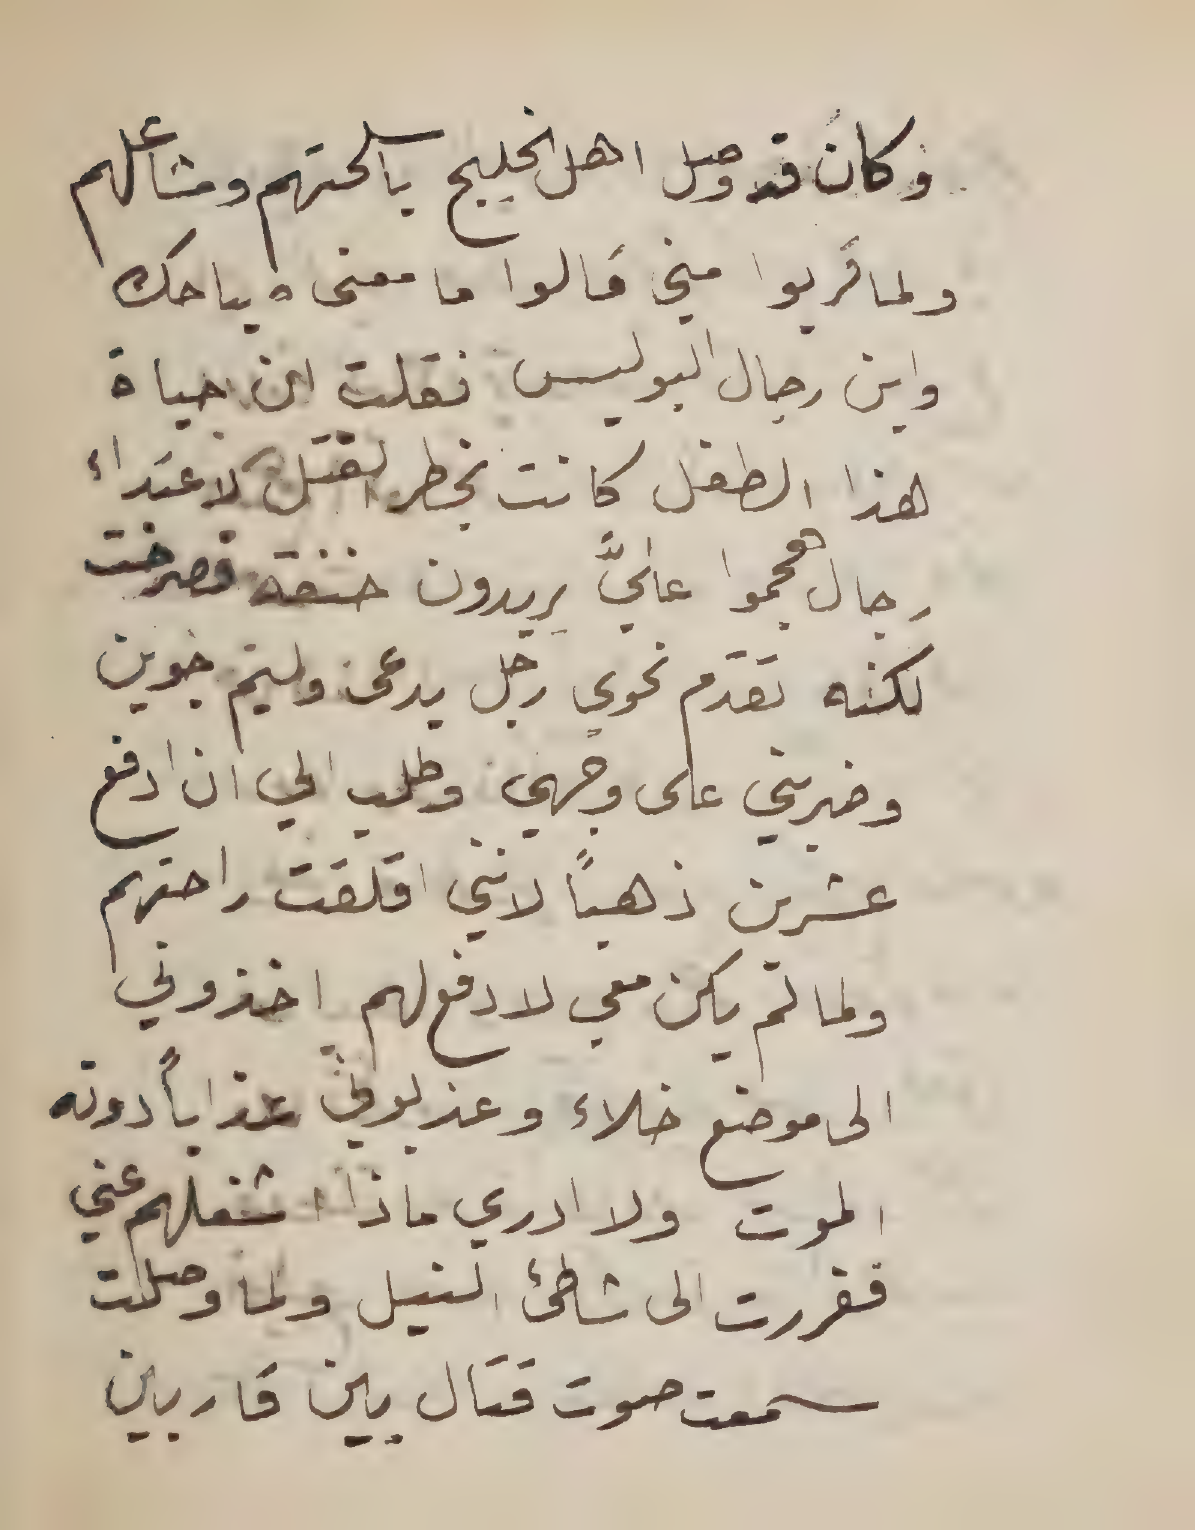 وكان قد وصل اهل الخليج باسلحتهم ومشاعلهم
ولما قربوا مني قالوا ما معنى صياحك
واين رجال البوليس فقلت ان حياة
هذا الطفل كانت بخطر القتل لاعتداء
رجال هجموا عليَّ يريدون خنقه فصرخت
لكنه تقدم نحوي رجل يدعى وليم جوين
وضربني على وجهي وطلب الي ان ادفع
عشرين ذهباً لانني اقلقت راحتهم
ولما لم يكن معي لادفع لهم اخذوني
الى موضع خلاء وعذبوني عذاباً دونه
الموت ولا ادري ماذا اشغلهم عني
ففررت الى شاطئ النيل ولما وصلت
سمعت صوت قتال بين قاربين